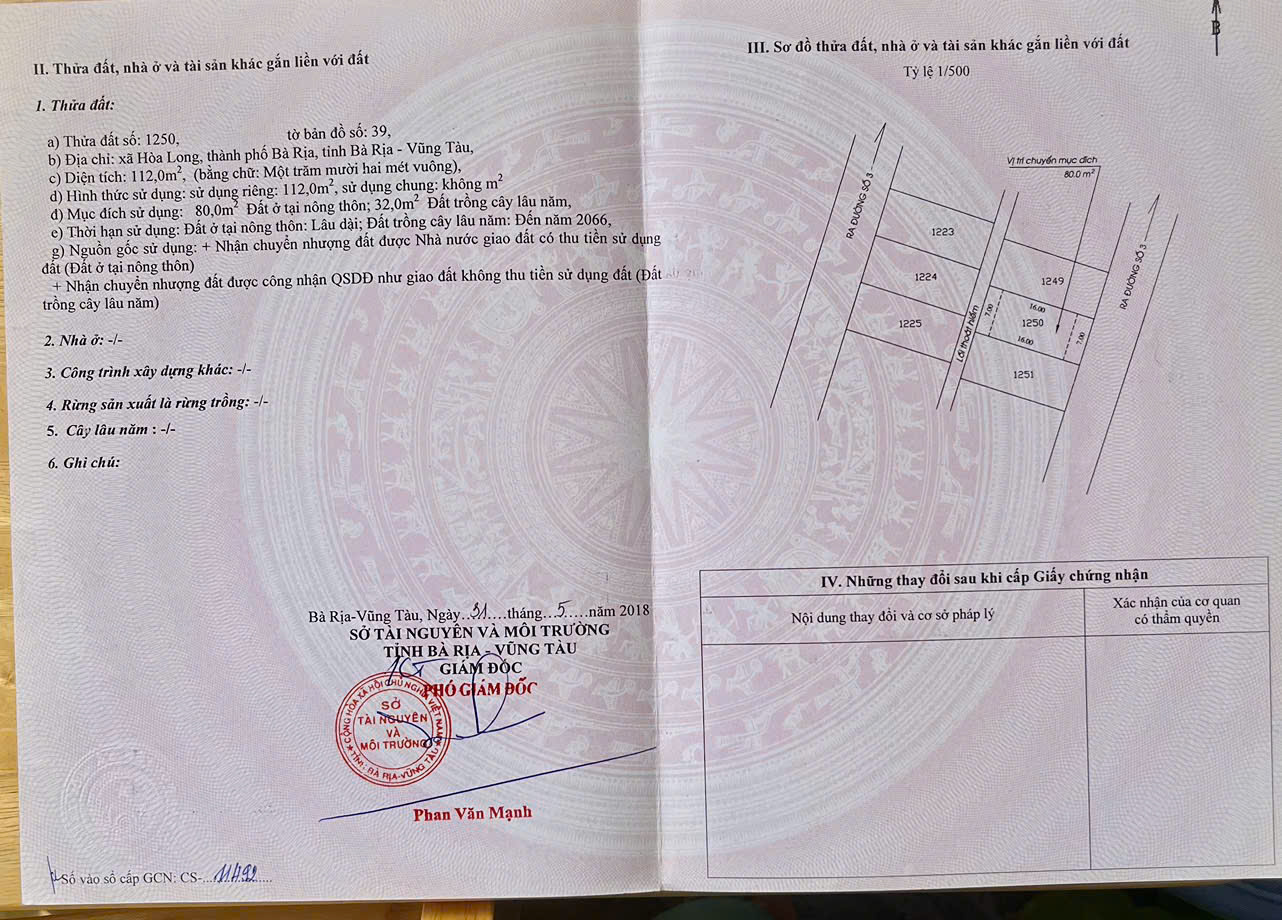 II. Thửa đất, nhà ở và tài sản khác gắn liền với đất
1. Thửa đất:
a) Thửa đất số: 1250, tờ bản đồ số: 39,
b) Địa chỉ: xã Hòa Long, thành phố Bà Rịa, tỉnh Bà Rịa - Vũng Tàu,
c) Diện tích: 112,0m², (bằng chữ: Một trăm mười hai mét vuông),
d) Hình thức sử dụng: sử dụng riêng: 112,0m², sử dụng chung: không m²
đ) Mục đích sử dụng: 80,0m² Đất ở tại nông thôn; 32,0m² Đất trồng cây lâu năm,
e) Thời hạn sử dụng: Đất ở tại nông thôn: Lâu dài; Đất trồng cây lâu năm: Đến năm 2066,
g) Nguồn gốc sử dụng: + Nhận chuyển nhượng đất được Nhà nước giao đất có thu tiền sử dụng
đất (Đất ở tại nông thôn)
+ Nhận chuyển nhượng đất được công nhận QSDĐ như giao đất không thu tiền sử dụng đất (Đất
trồng cây lâu năm)
2. Nhà ở: -/-
3. Công trình xây dựng khác: -/-
4. Rừng sản xuất là rừng trồng: -/-
5. Cây lâu năm : -/-
6. Ghi chú:
Bà Rịa-Vũng Tàu, Ngày...31....tháng...5.....năm 2018
SỞ TÀI NGUYÊN VÀ MÔI TRƯỜNG
TỈNH BÀ RỊA - VŨNG TÀU
GIÁM ĐỐC
PHÓ GIÁM ĐỐC
CỘNG HÒA XÃ HỘI CHỦ NGHĨA VIỆT NAM
SỞ
TÀI NGUYÊN
VÀ
MÔI TRƯỜNG
TỈNH: BÀ RỊA-VŨNG TÀU
Phan Văn Mạnh
Số vào sổ cấp GCN: CS-
III. Sơ đồ thửa đất, nhà ở và tài sản khác gắn liền với đất
Tỷ lệ 1/500
B
Vị trí chuyển mục đích
80.0 m²
RA ĐƯỜNG SỐ 3
1223
1224
1225
Lối thoát hiểm
1249
7.00
16.00
1250
16.00
7.00
1251
RA ĐƯỜNG SỐ 3
IV. Những thay đổi sau khi cấp Giấy chứng nhận
Nội dung thay đổi và cơ sở pháp lý
Xác nhận của cơ quan
có thẩm quyền